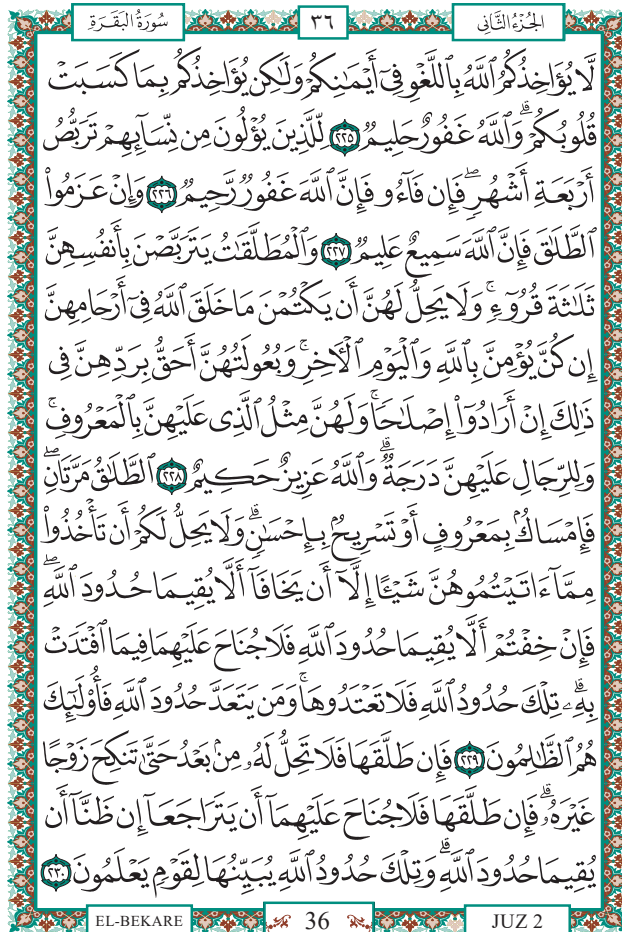 سُورَةُ الْبَقَرَةِ ٣٦ الجُزْءُ الثَّانِي
لَّا يُؤَاخِذُكُمُ ٱللَّهُ بِٱللَّغْوِ فِىٓ أَيْمَـٰنِكُمْ وَلَـٰكِن يُؤَاخِذُكُم بِمَا كَسَبَتْ
قُلُوبُكُمْ ۗ وَٱللَّهُ غَفُورٌ حَلِيمٌ ﴿٢٢٥﴾ لِّلَّذِينَ يُؤْلُونَ مِن نِّسَآئِهِمْ تَرَبُّصُ
أَرْبَعَةِ أَشْهُرٍ ۖ فَإِن فَآءُو فَإِنَّ ٱللَّهَ غَفُورٌ رَّحِيمٌ ﴿٢٢٦﴾ وَإِنْ عَزَمُوا۟
ٱلطَّلَـٰقَ فَإِنَّ ٱللَّهَ سَمِيعٌ عَلِيمٌ ﴿٢٢٧﴾ وَٱلْمُطَلَّقَـٰتُ يَتَرَبَّصْنَ بِأَنفُسِهِنَّ
ثَلَـٰثَةَ قُرُوٓءٍ ۚ وَلَا يَحِلُّ لَهُنَّ أَن يَكْتُمْنَ مَا خَلَقَ ٱللَّهُ فِىٓ أَرْحَامِهِنَّ
إِن كُنَّ يُؤْمِنَّ بِٱللَّهِ وَٱلْيَوْمِ ٱلْـَٔاخِرِ ۚ وَبُعُولَتُهُنَّ أَحَقُّ بِرَدِّهِنَّ فِى
ذَٰلِكَ إِنْ أَرَادُوٓا۟ إِصْلَـٰحًا ۚ وَلَهُنَّ مِثْلُ ٱلَّذِى عَلَيْهِنَّ بِٱلْمَعْرُوفِ ۚ
وَلِلرِّجَالِ عَلَيْهِنَّ دَرَجَةٌ ۗ وَٱللَّهُ عَزِيزٌ حَكِيمٌ ﴿٢٢٨﴾ ٱلطَّلَـٰقُ مَرَّتَانِ ۖ
فَإِمْسَاكٌۢ بِمَعْرُوفٍ أَوْ تَسْرِيحٌۢ بِإِحْسَـٰنٍ ۗ وَلَا يَحِلُّ لَكُمْ أَن تَأْخُذُوا۟
مِمَّآ ءَاتَيْتُمُوهُنَّ شَيْـًٔا إِلَّآ أَن يَخَافَآ أَلَّا يُقِيمَا حُدُودَ ٱللَّهِ ۖ
فَإِنْ خِفْتُمْ أَلَّا يُقِيمَا حُدُودَ ٱللَّهِ فَلَا جُنَاحَ عَلَيْهِمَا فِيمَا ٱفْتَدَتْ
بِهِۦ ۗ تِلْكَ حُدُودُ ٱللَّهِ فَلَا تَعْتَدُوهَا ۚ وَمَن يَتَعَدَّ حُدُودَ ٱللَّهِ فَأُو۟لَـٰٓئِكَ
هُمُ ٱلظَّـٰلِمُونَ ﴿٢٢٩﴾ فَإِن طَلَّقَهَا فَلَا تَحِلُّ لَهُۥ مِنۢ بَعْدُ حَتَّىٰ تَنكِحَ زَوْجًا
غَيْرَهُۥ ۗ فَإِن طَلَّقَهَا فَلَا جُنَاحَ عَلَيْهِمَآ أَن يَتَرَاجَعَآ إِن ظَنَّآ أَن
يُقِيمَا حُدُودَ ٱللَّهِ ۗ وَتِلْكَ حُدُودُ ٱللَّهِ يُبَيِّنُهَا لِقَوْمٍ يَعْلَمُونَ ﴿٢٣٠﴾
EL-BEKARE 36 JUZ 2